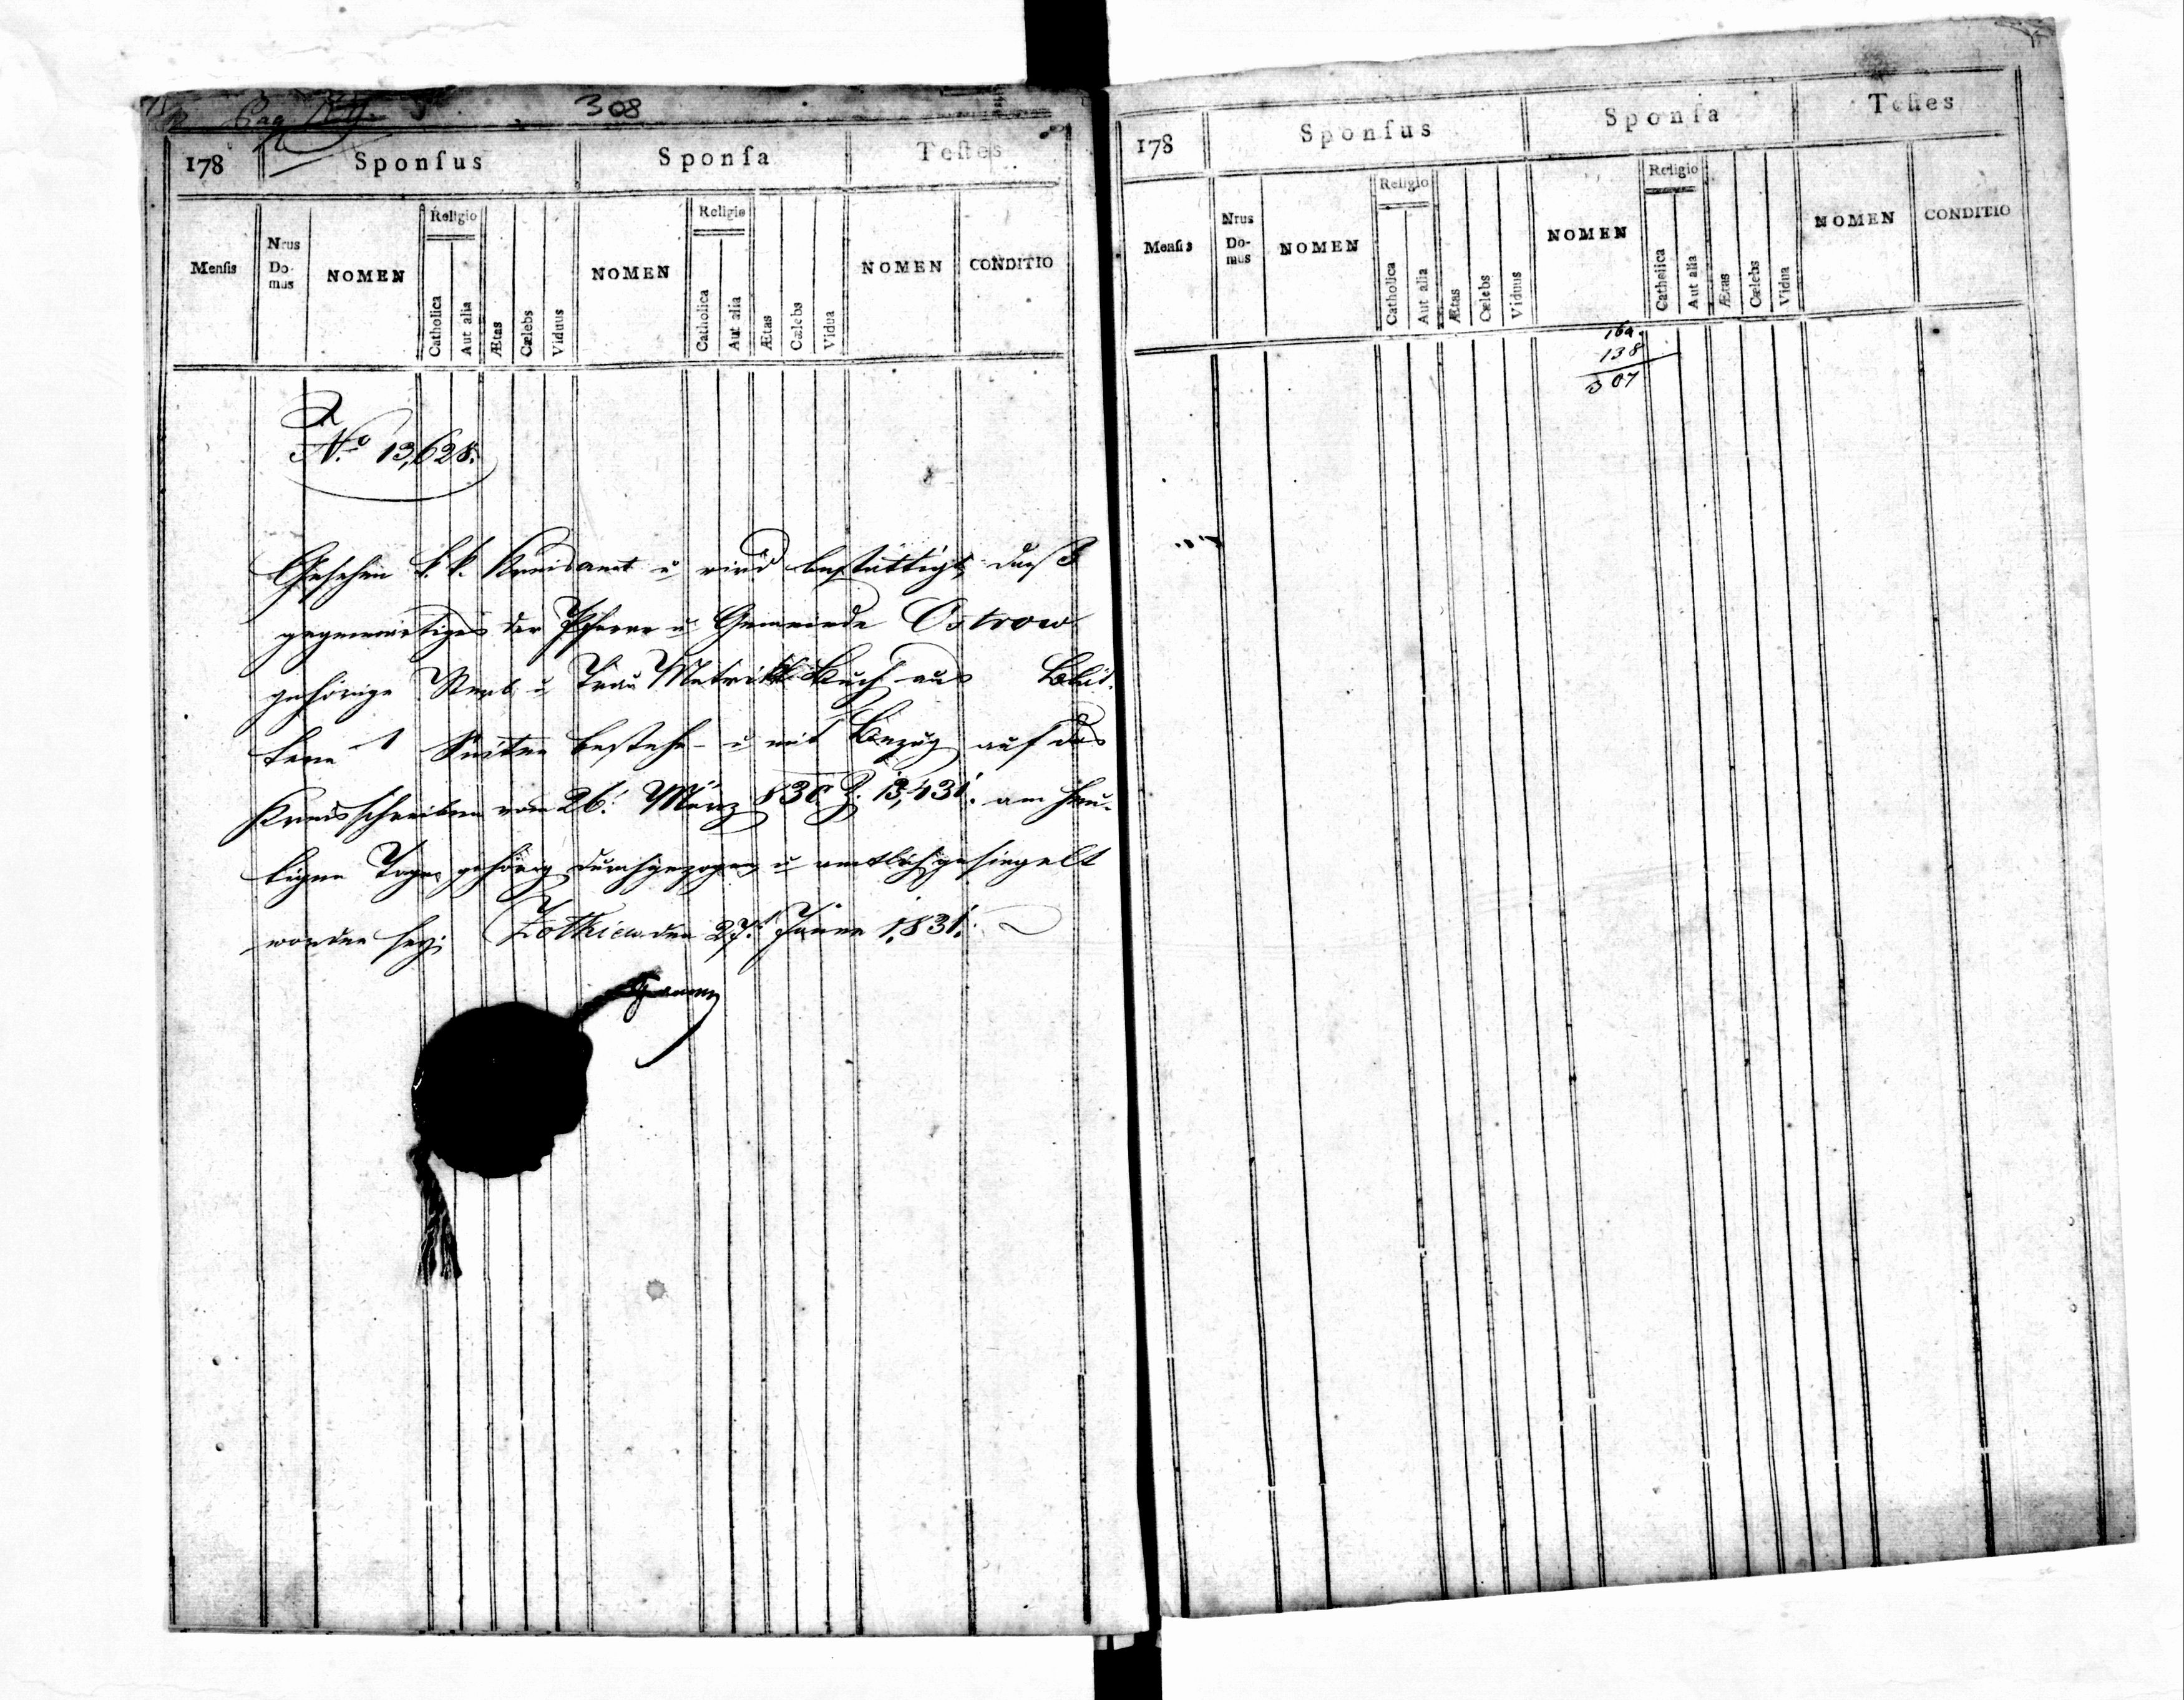 Pag 308
178 Sponſus Sponſa Teſtes
Menſis Nrus Do- mus NOMEN Religio Catholica Aut alia Ætas Cælebs Viduus NOMEN Religio Catholica Aut alia Ætas Cælebs Vidua NOMEN CONDITIO
No 13,628.
Gesehen k. k. Kreisamt u wird bestättigt, daß
gegenwärtiges der Pfarre u Gemeinde Ostrow
gehörige Sterb u Trau Metrik Buch aus Blät-
tern Seiten bestehe u mit Bezug auf das
Kreisschreiben vom 26. März 830 Z. 13,431. am heu-
tigen Tage gehörig durchgezogen u amtlich gesiegelt
worden sey. Zołkiew den 27. Jänner 1831.
178 Sponſus Sponſa Teſtes
Menſis Nrus Do- mus NOMEN Religio Catholica Aut alia Ætas Cælebs Viduus NOMEN Religio Catholica Aut alia Ætas Cælebs Vidua NOMEN CONDITIO
138
307